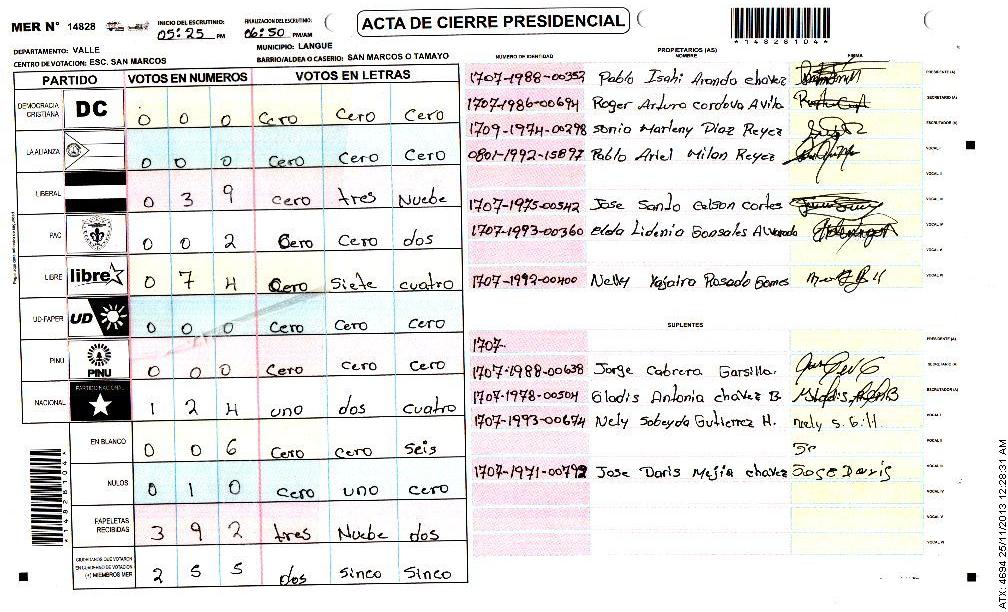 MER N° 14828 INICIO DEL ESCRUTINIO: 05:25 PM FINALIZACION DEL ESCRUTINIO: 06:50 PM/AM
ACTA DE CIERRE PRESIDENCIAL
*14828104*
DEPARTAMENTO: VALLE MUNICIPIO: LANGUE
CENTRO DE VOTACION: ESC. SAN MARCOS BARRIO/ALDEA O CASERIO: SAN MARCOS O TAMAYO
PARTIDO VOTOS EN NUMEROS VOTOS EN LETRAS
DEMOCRACIA CRISTIANA DC 0 0 0 Cero Cero Cero
LA ALIANZA 0 0 0 Cero Cero Cero
LIBERAL 0 3 9 cero tres Nuebe
PAC 0 0 2 Cero Cero dos
LIBRE libre 0 7 4 Cero Siete cuatro
UD-FAPER UD 0 0 0 Cero Cero Cero
PINU PINU 0 0 0 Cero cero Cero
NACIONAL PARTIDO NACIONAL 1 2 4 uno dos cuatro
EN BLANCO 0 0 6 Cero Cero Seis
NULOS 0 1 0 Cero uno cero
PAPELETAS RECIBIDAS 3 9 2 tres Nuebe dos
CIUDADANOS QUE VOTARON EN CUADERNO DE VOTACION (+) MIEMBROS MER 2 5 5 dos Sinco Sinco
PROPIETARIOS (AS)
NUMERO DE IDENTIDAD NOMBRE FIRMA
1707-1988-00352 Pablo Isahi Arondo chavez PRESIDENTE (A)
1707-1986-00694 Roger Arturo cordova Avila SECRETARIO (A)
1709-1974-00298 sonia Marleny Diaz Reyez ESCRUTADOR (A)
0801-1992-15897 Pablo Ariel Milan Reyez VOCAL I
VOCAL II
1707-1975-00542 Jose Santo Gelson cortes VOCAL III
1707-1993-00360 elda Lidenia Gonsales Alvarado VOCAL IV
VOCAL V
1707-1992-00400 Nelly Yajaira Rosado Gomes VOCAL VI
SUPLENTES
1707- PRESIDENTE (A)
1707-1988-00638 Jorge Cabrera Garsilla. SECRETARIO (A)
1707-1978-00504 Gladis Antonia chavez B. ESCRUTADOR (A)
1707-1993-00674 Nely Sobeyda Gutierrez H. nely s. G. H. VOCAL I
VOCAL II
1707-1971-00792 Jose Daris Mejia chavez Jose Daris VOCAL III
VOCAL IV
VOCAL V
VOCAL VI
*14828104*
ATX: 4694 25/11/2013 12:28:31 AM